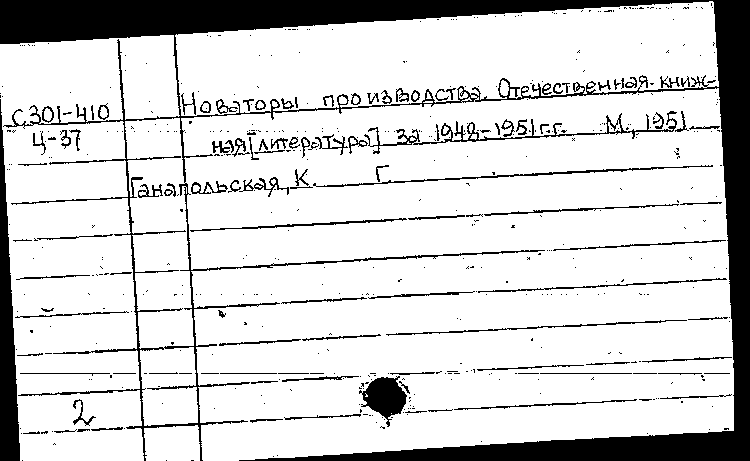 С301-410
Ц-37
Новаторы производства. Отечественная книж-
ная [литература] за 1948-1951 г.г. М., 1951
Ганапольская, К. Г
2